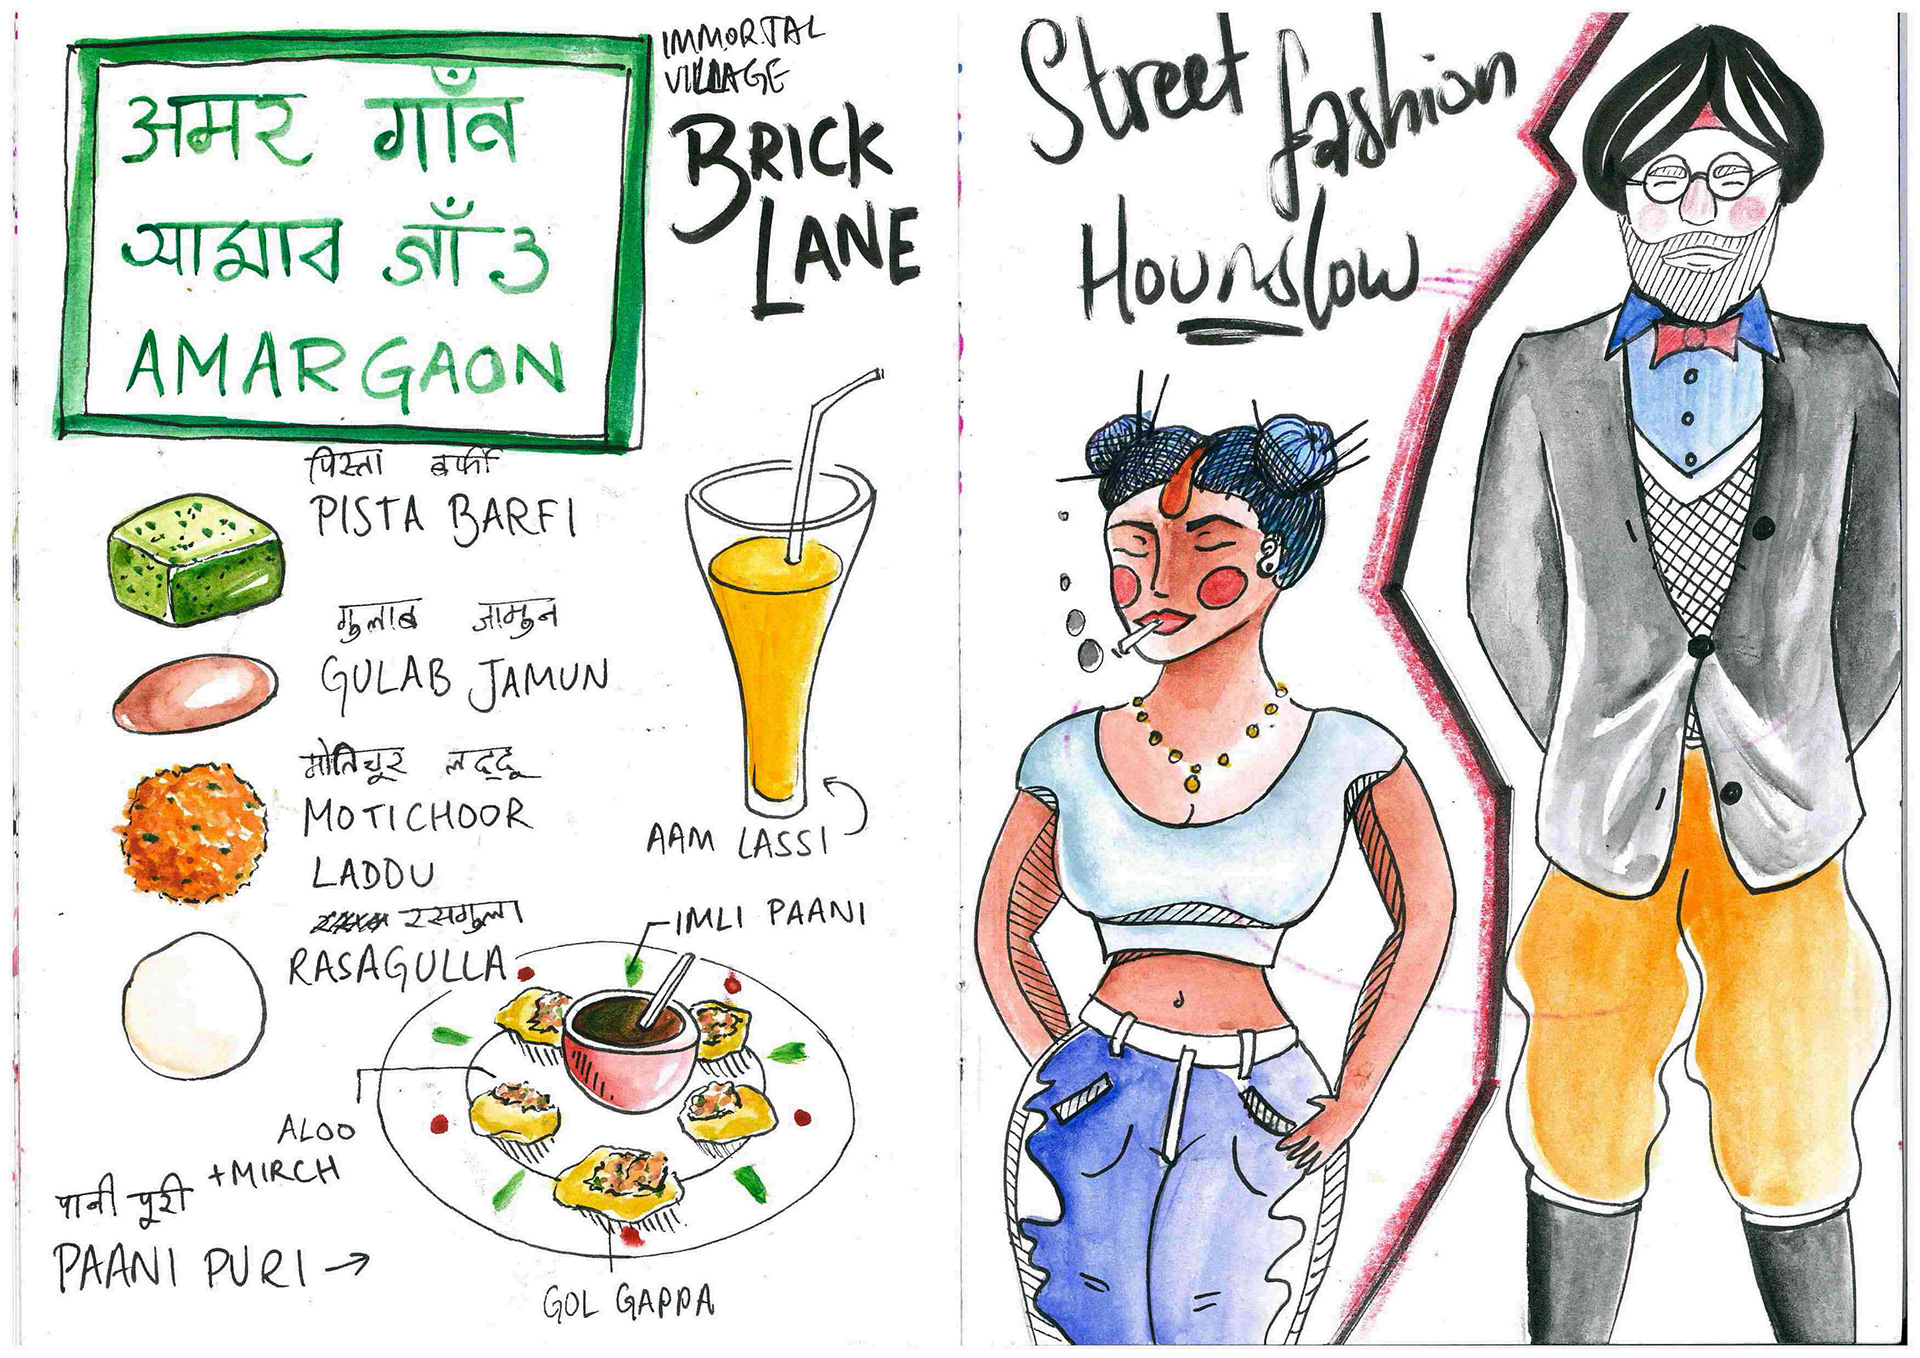 अमर गाँव
আমার গাঁও
AMAR GAON
IMMORTAL
VILLAGE
BRICK
LANE
पिस्ता बर्फी
PISTA BARFI
गुलाब जामुन
GULAB JAMUN
मोतिचूर लद्दू
MOTICHOOR
LADDU
रसगुल्ला
RASAGULLA
AAM LASSI
IMLI PAANI
ALOO
+MIRCH
पानी पूरी
PAANI PURI →
GOL GAPPA
Street fashion
Hounslow